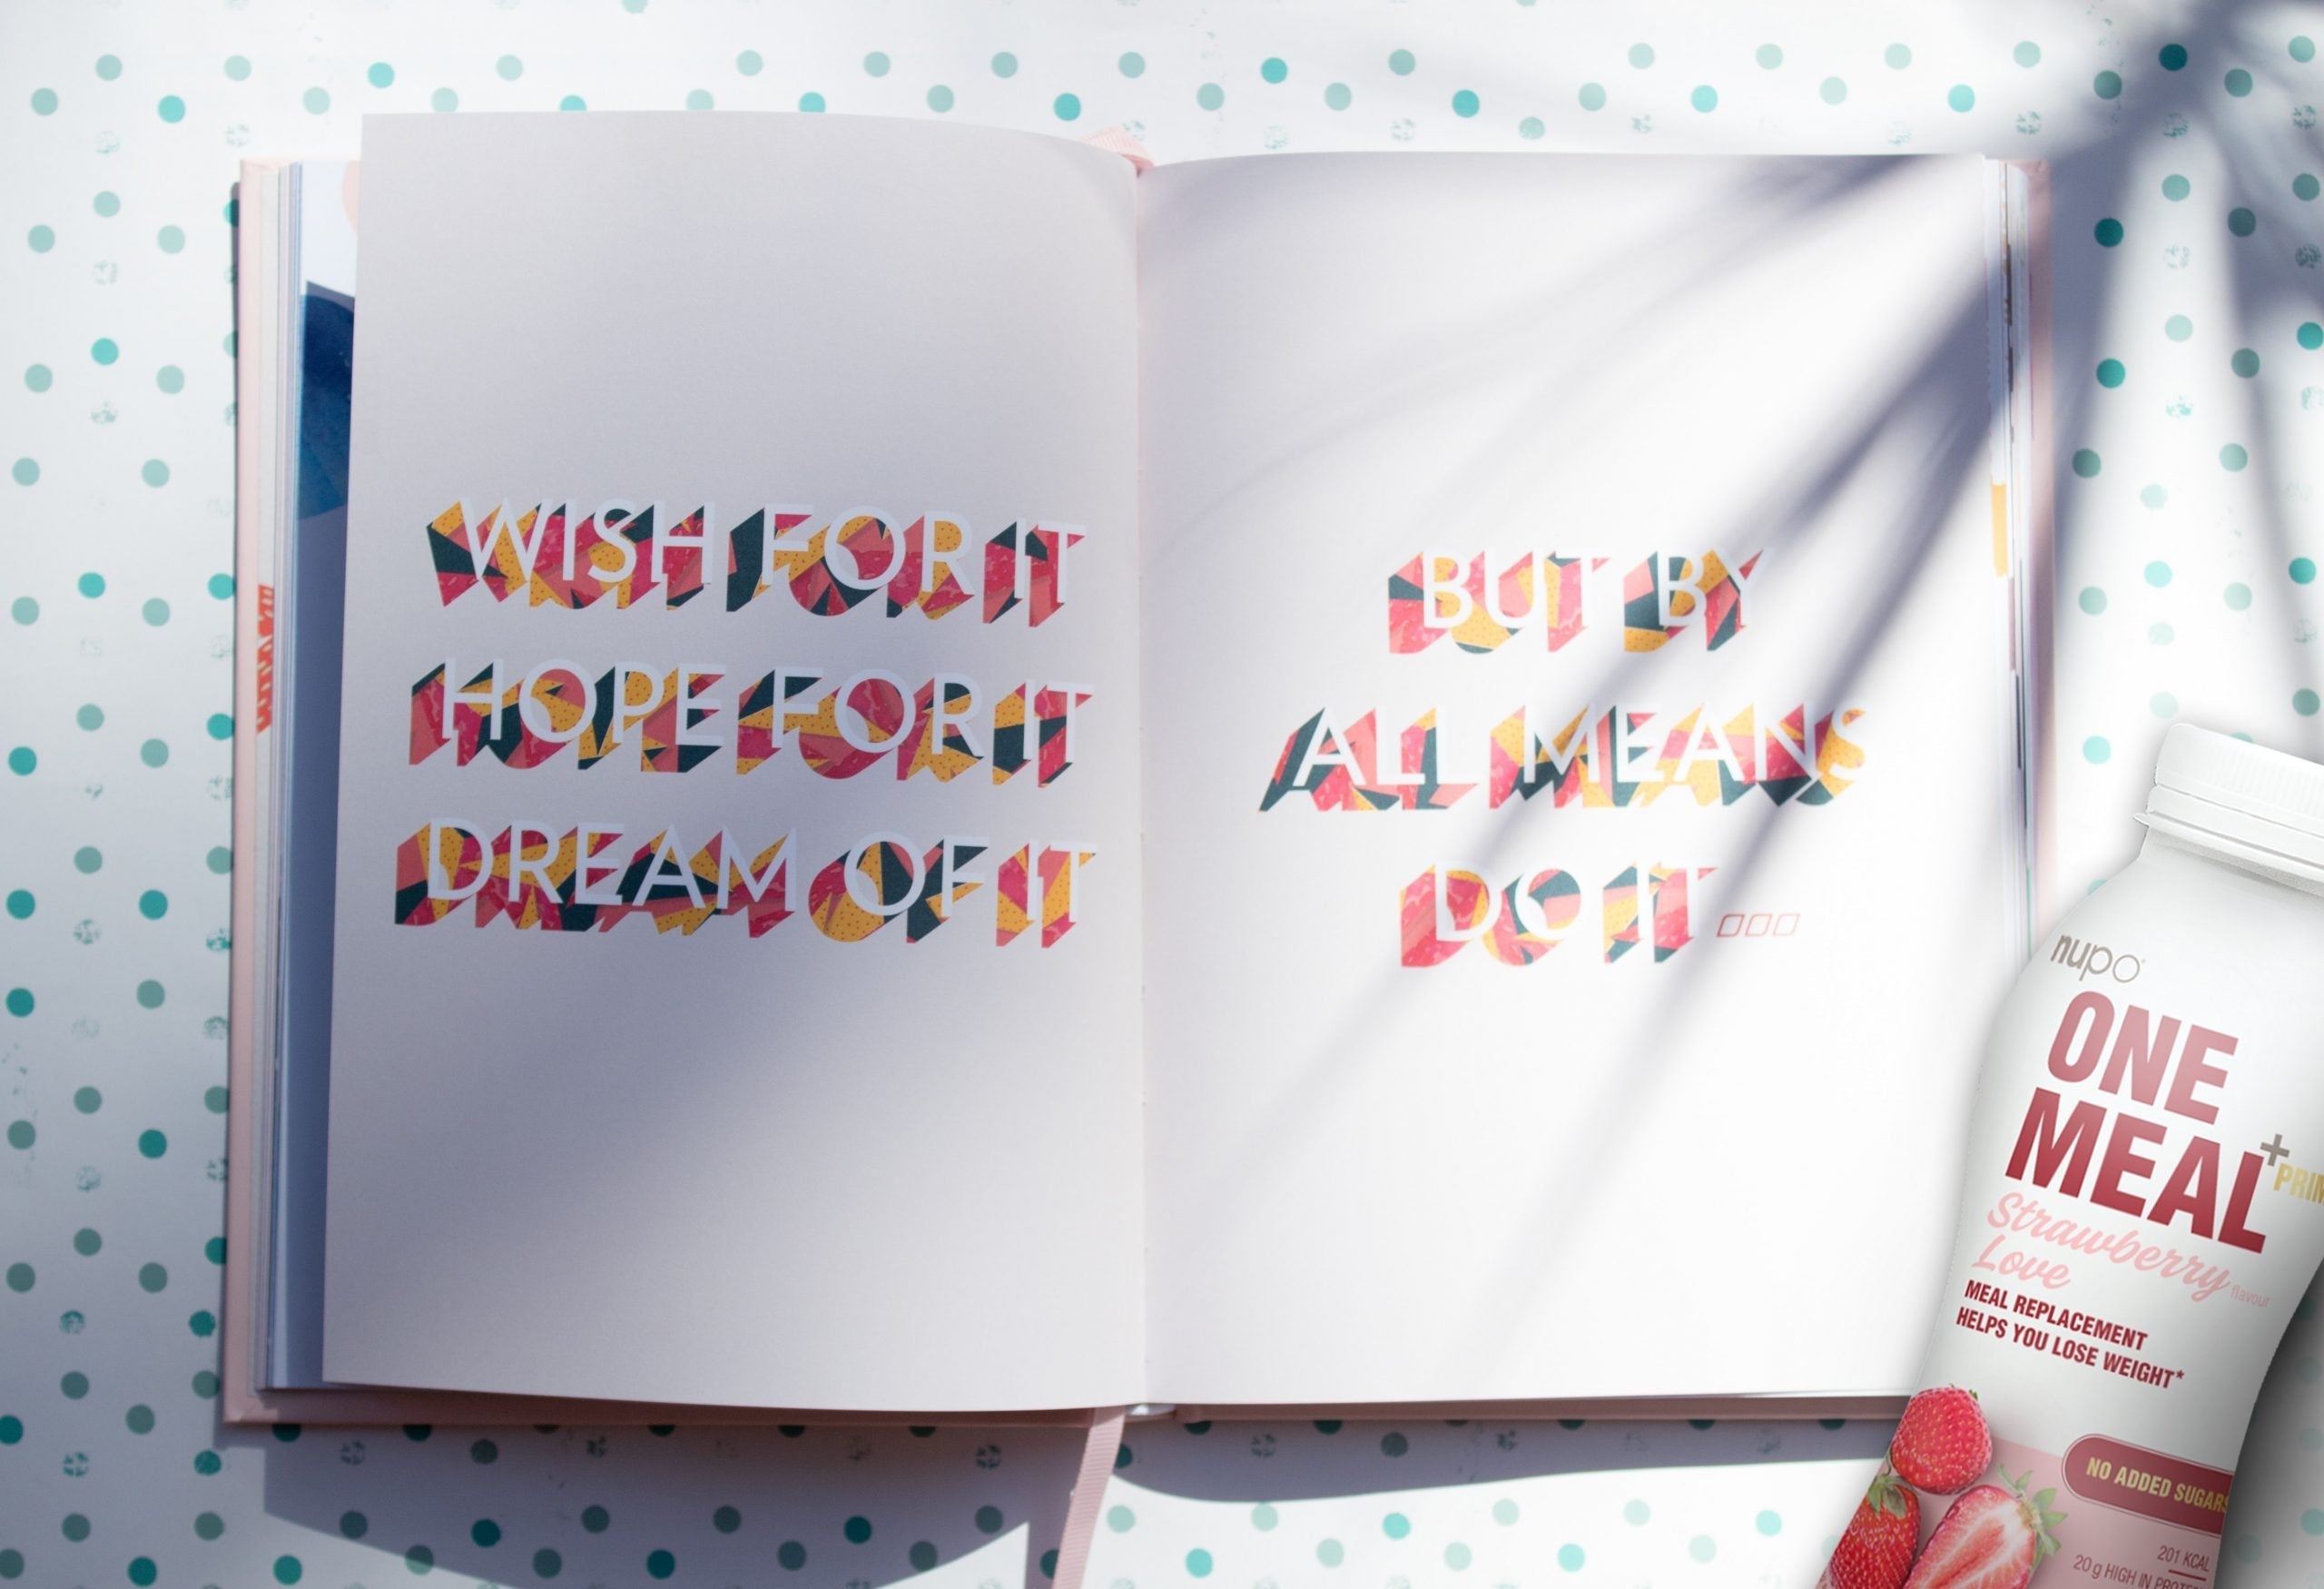 WISH FOR IT
HOPE FOR IT
DREAM OF IT
BUT BY
ALL MEANS
DO IT
nupo
ONE
MEAL+
Strawberry
Love flavour
MEAL REPLACEMENT
HELPS YOU LOSE WEIGHT*
NO ADDED SUGARS
201 KCAL
20 g HIGH IN